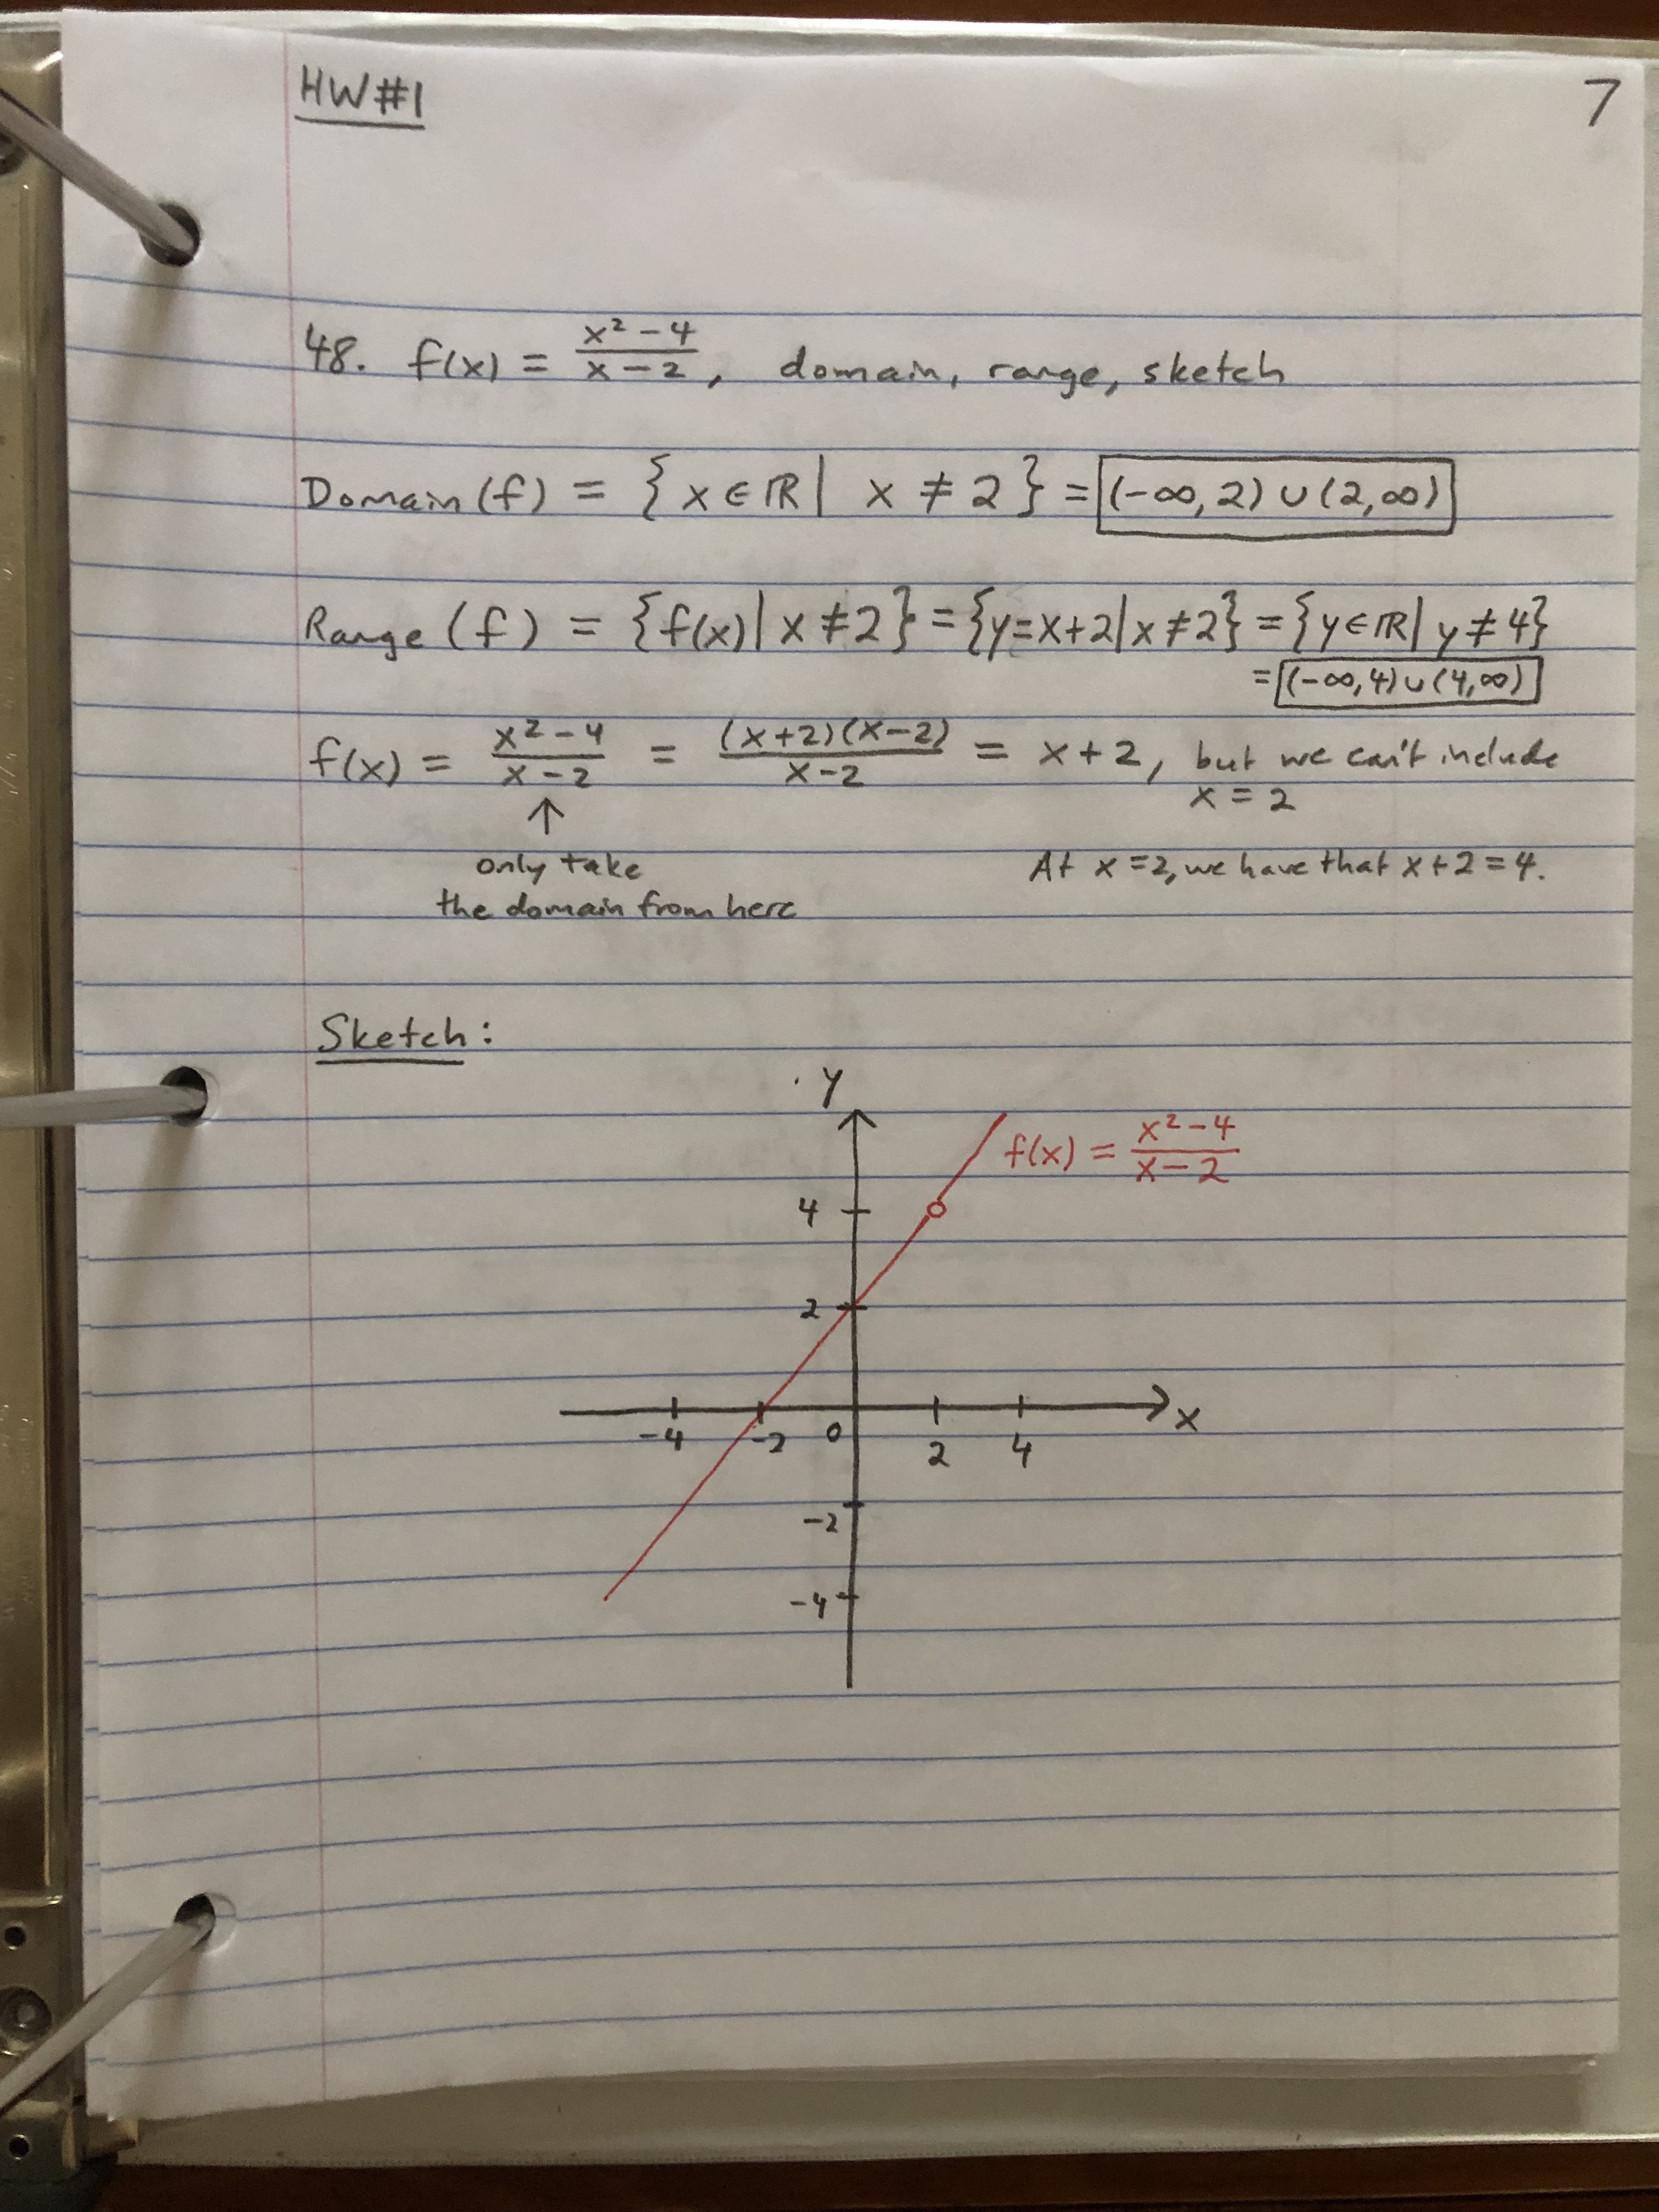 HW#1
7
48. f(x) = (x² - 4)/(x - 2), domain, range, sketch
Domain(f) = {x ∈ ℝ | x ≠ 2} = (-∞, 2) ∪ (2, ∞)
Range(f) = {f(x) | x ≠ 2} = {y = x+2 | x ≠ 2} = {y ∈ ℝ | y ≠ 4}
= (-∞, 4) ∪ (4, ∞)
f(x) = (x² - 4)/(x - 2) = (x+2)(x-2)/(x-2) = x + 2, but we can't include
x = 2
↑
only take
the domain from here
At x = 2, we have that x + 2 = 4.
Sketch:
y
f(x) = (x² - 4)/(x - 2)
4
2
-4 -2 0 2 4 x
-2
-4